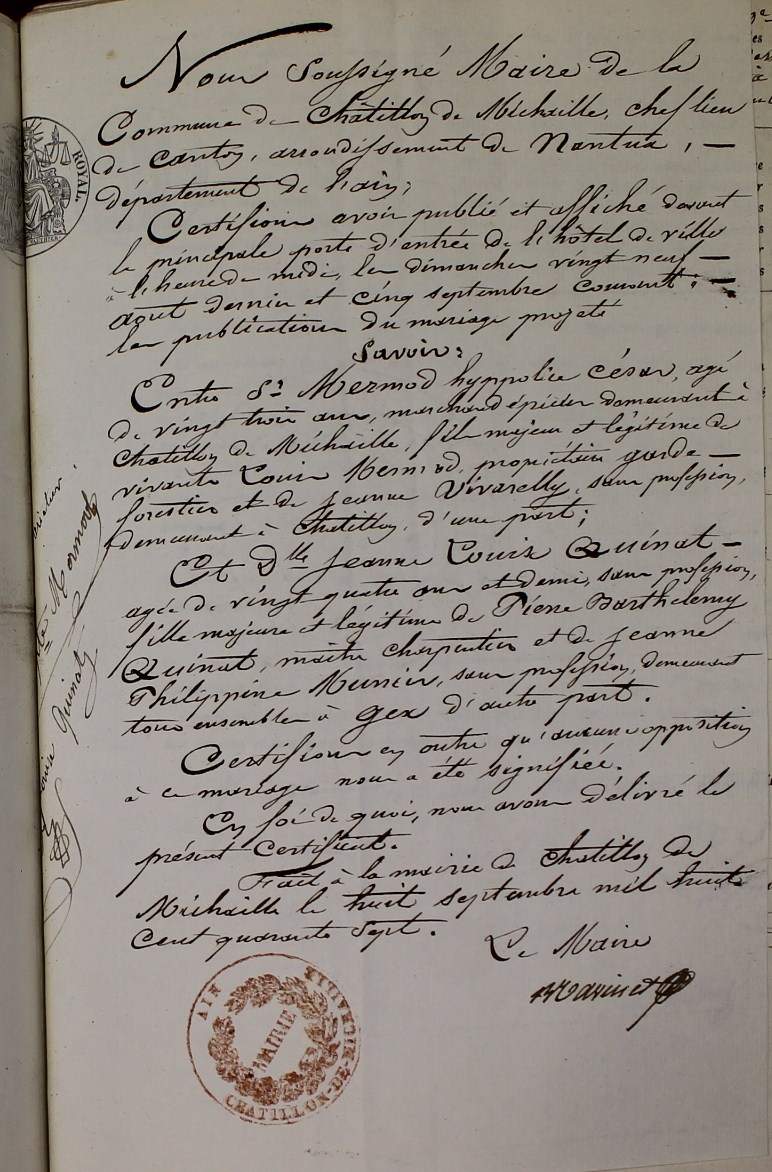 Nous Soussigné Maire de la
Commune de Châtillon de Michaille, chef lieu
de canton, arrondissement de Nantua, —
département de l'ain;
Certifions avoir publié et affiché devant
la principale porte d'entrée de l'hôtel de ville
à l'heure de midi, les dimanches vingt neuf —
aout dernier et cinq septembre courant: —
les publications du mariage projeté
Savoir:
Entre Sr. Mermod hyppolite César, agé
de vingt trois ans, marchand épicier demeurant à
Chatillon de Michaille, fils majeur et légitime de
vivants Louis Mermod, propriétaire garde —
forestier et de Jeanne Vivarelly, sans profession,
demeurant à Chatillon, d'une part;
Et Dlle Jeanne Louise Quinat —
agée de vingt quatre ans et demi, sans profession,
fille majeure et légitime de Pierre Barthelemy
Quinat, maître charpentier et de Jeanne
Philippine Munier, sans profession, demeurant
tous ensembles à Gex d'autre part.
Certifions en outre qu'aucune opposition
à ce mariage nous a été signifiée.
En foi de quoi, nous avons délivré le
présent Certificat.
Fait à la mairie de Chatillon de
Michaille le huit septembre mil huit
cent quarante sept.
Le Maire
ROYAL.
Mermod
Quinat
AIN
MAIRIE
CHATILLON-DE-MICHAILLE